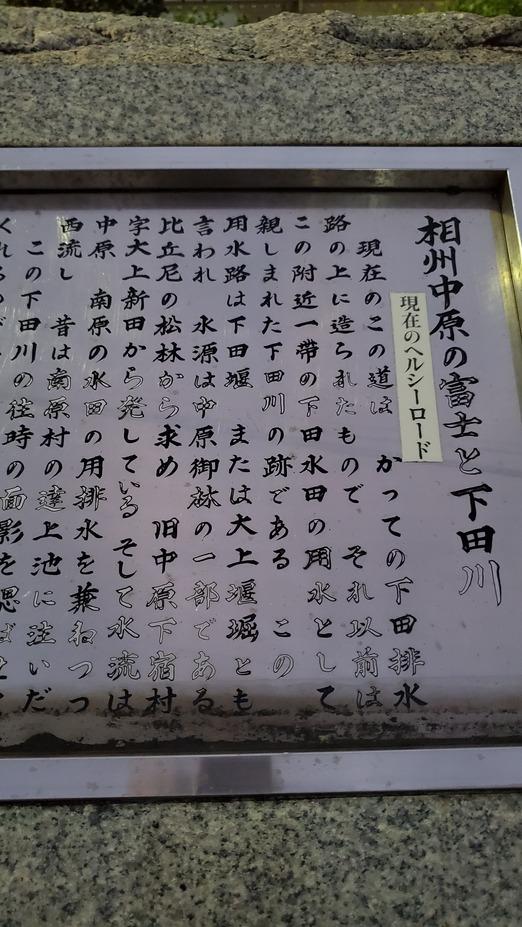 相州中原の富士と下田川
現在のヘルシーロード
現在のこの道は かつての下田排水
路の上に造られたもので それ以前は
この附近一帯の下田水田の用水として
親しまれた下田川の跡である この
用水路は下田堰 または大上堰堀とも
言われ 水源は中原御林の一部である
比丘尼の松林から求め 旧中原下宿村
字大上新田から発している そして水流は
中原 南原の水田の用排水を兼ねつつ
西流し 昔は南原村の達上池に注いだ
この下田川の往時の面影を思ばせ